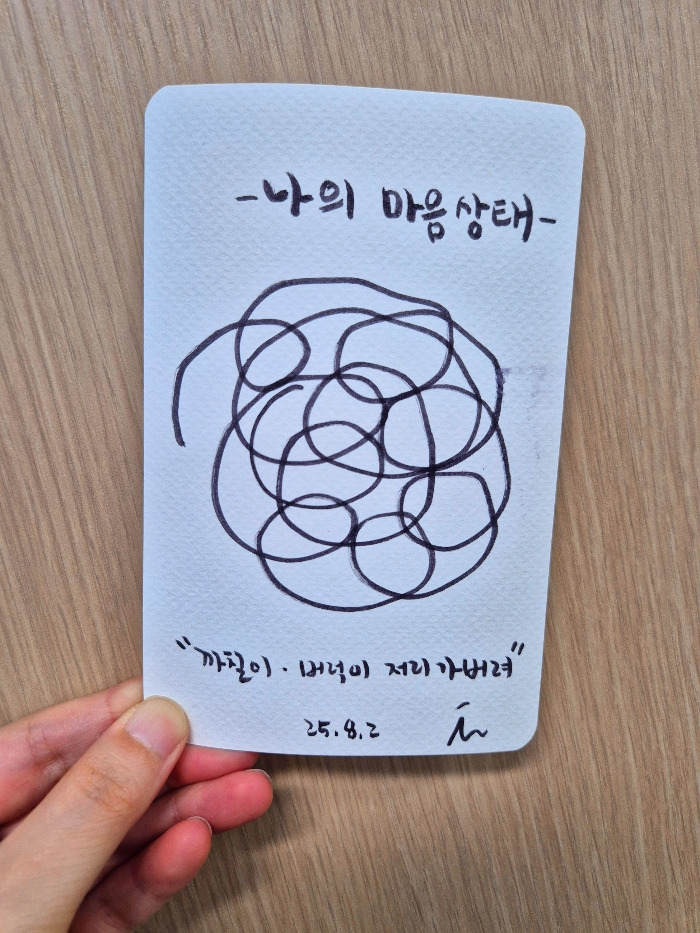 -나의 마음상태-
"까칠이 · 버럭이 저리가버려"
25.8.2